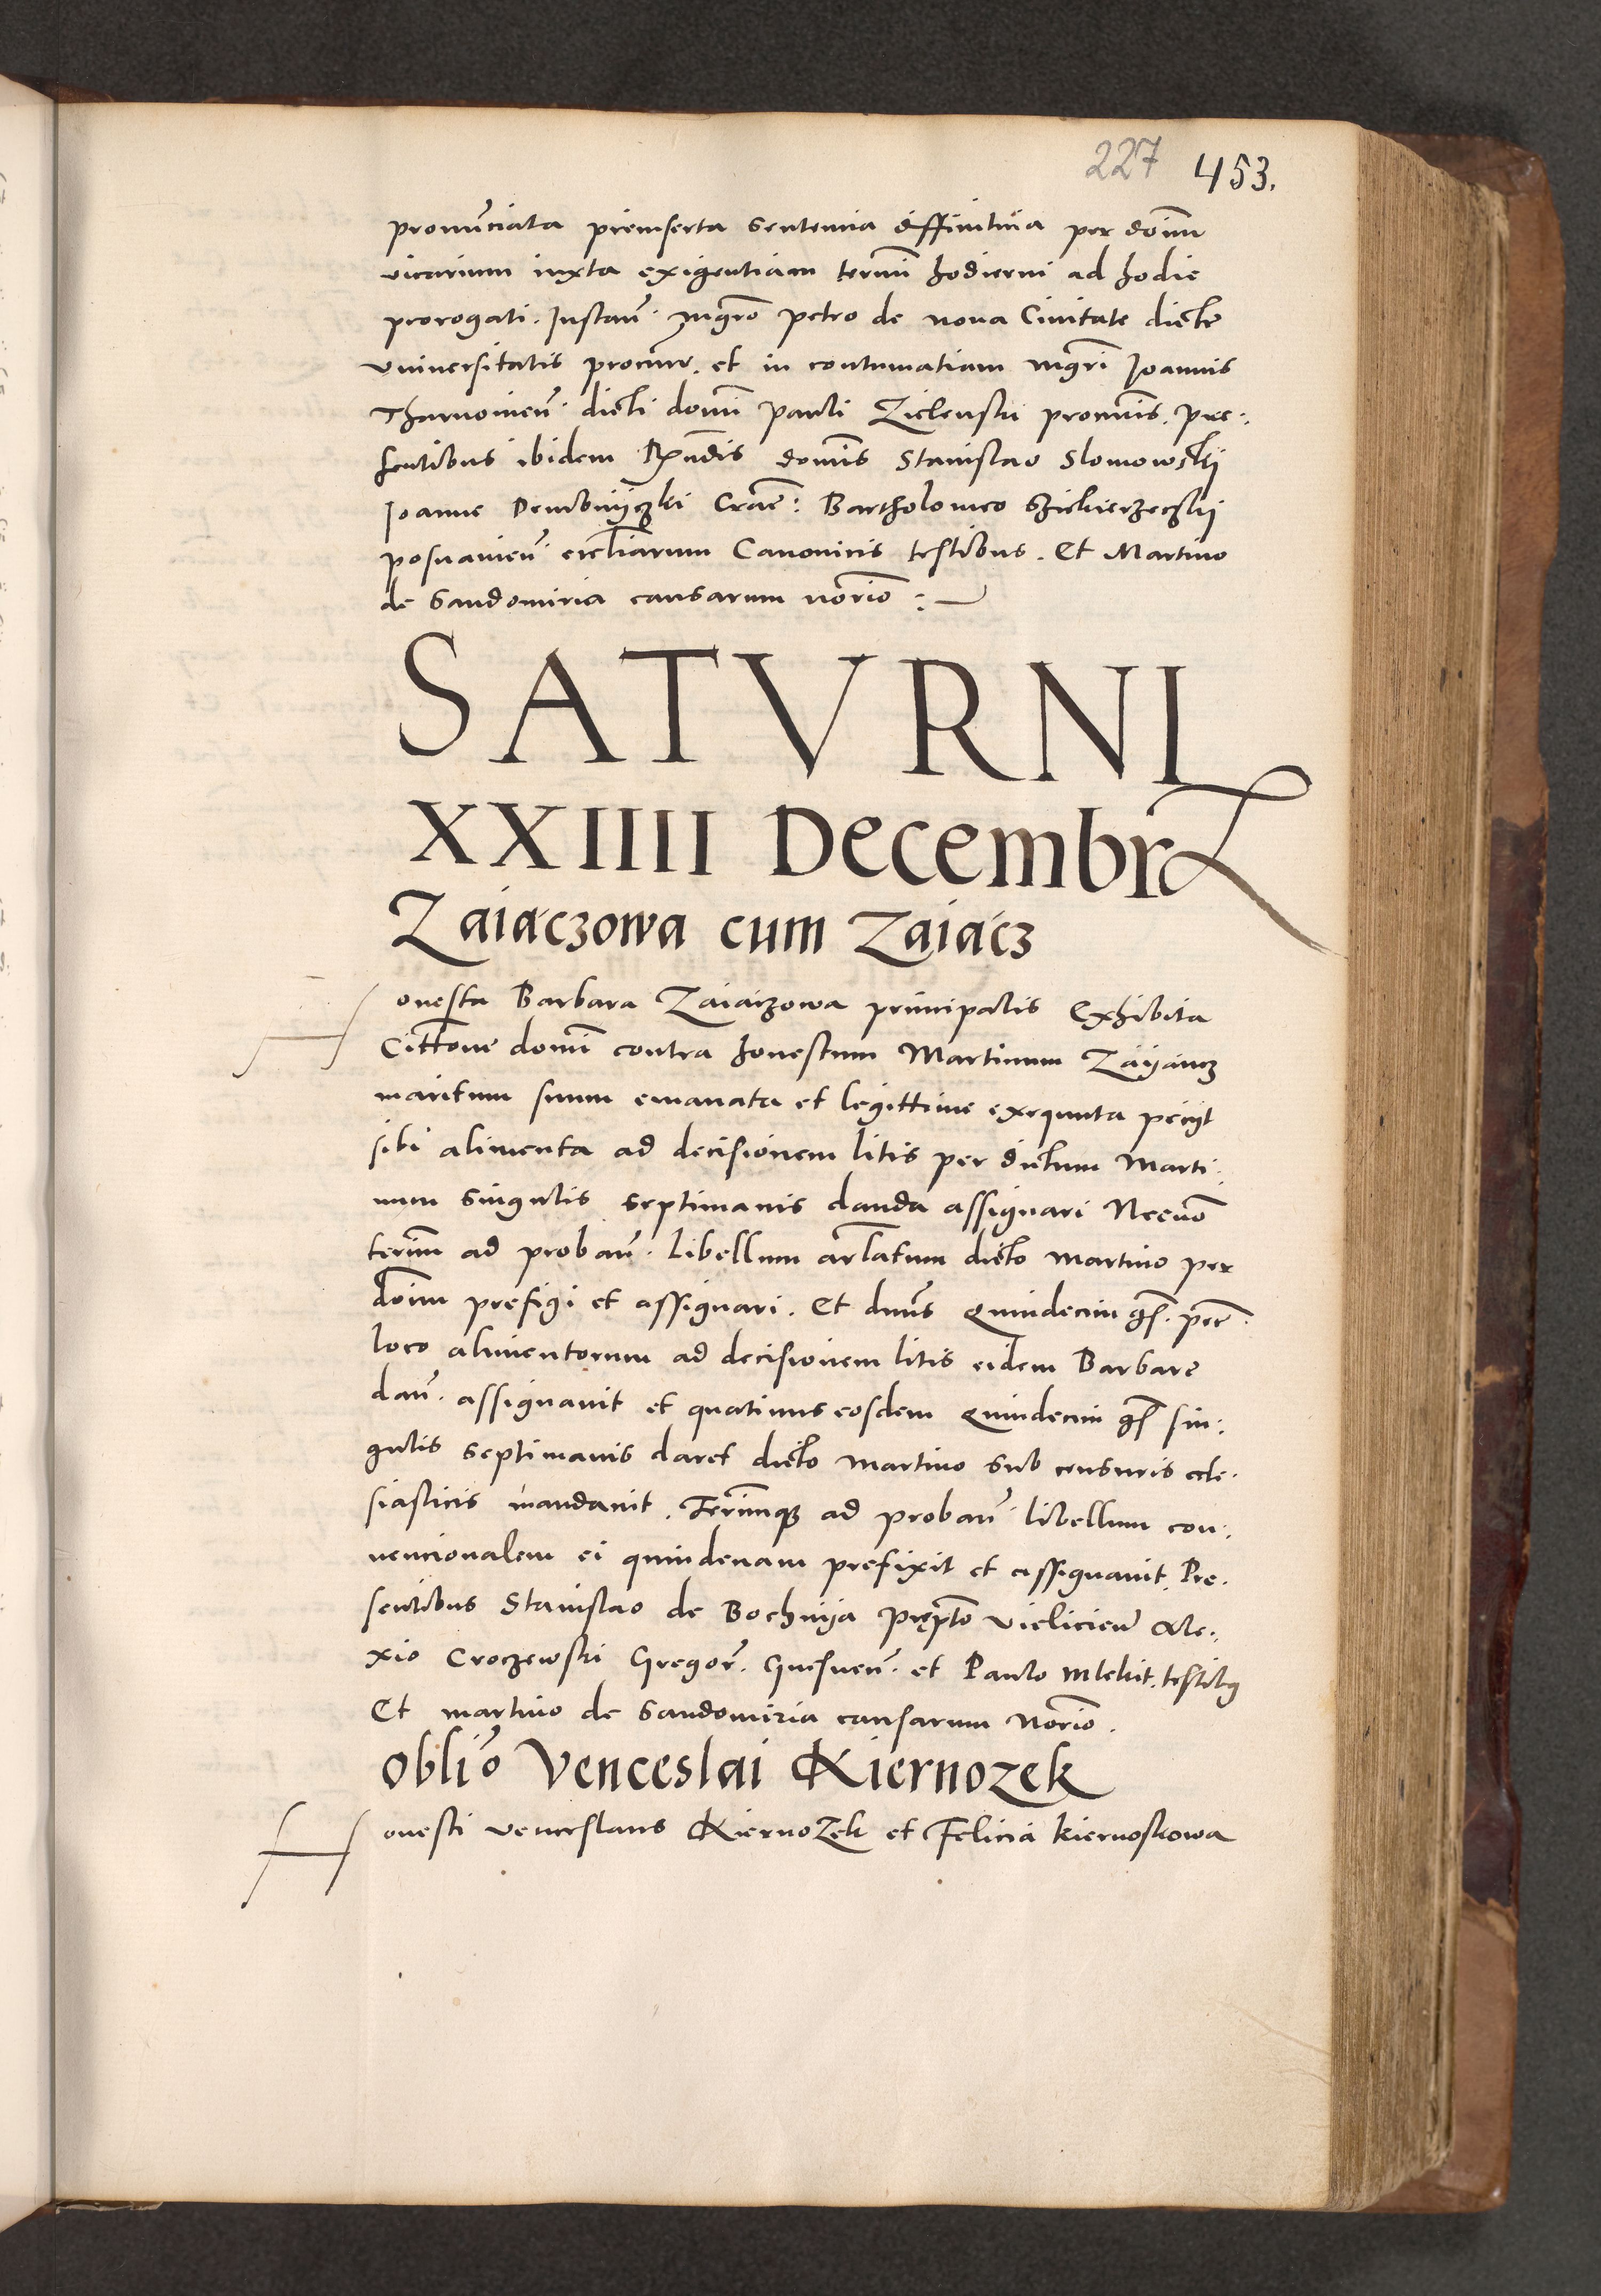 227 453.
pronunciata preinserta sententia diffinitiva per domin
vicarium iuxta exigentiam termi hodierni ad hodie
prorogati. Instan. Mgro Petro de nova Civitate dicte
universitatis procure. et in contumatiam mgri Joannis
Tharnovien. dicti domi Pauli Zielenski procuris. Pre:
sentibus ibidem Rndis domis Stanislao Slomowskij
Joanne Dembnijczki Crac: Bartholomeo
posnanien. eccliarum Canonicis testibus. Et Martino
de Sandomiria causarum norio:
SATVRNI
XXIIII Decembris
Zaiáczowa cum Zaiácz
Honesta Barbara Zaiáczowa principalis Exhibita
Cittone domi contra honestum Martinum Zaÿáncz
maritum suum emanata et legittime exequuta pecijt
sibi alimenta ad decisionem litis per dictum Marti:
num singulis septimanis danda assignari Necno
termi ad proban. Libellum arlatum dicto Martino per
domin prefigi et assignari. Et dnus Quindecim gs. pec.
loco alimentorum ad decisionem litis eidem Barbare
dan. assignavit et quatinus eosdem Quindecim gs sin:
gulis septimanis daret dicto Martino sub censuris ecle:
siasticis mandavit. Terimq ad proban. libellum con:
vencionalem ei quindenam prefixit et assignavit. Pre:
sentibus Stanislao de Bochnija Prepto Vielicien Ale:
xio Croczewski Gregor. Gnesnen. et Paulo Mlekit. testibus
Et Martino de Sandomiria causarum Norio.
Oblio Venceslai Kiernozek
Honesti Venceslaus Kiernozek et Felicia Kiernoskowa